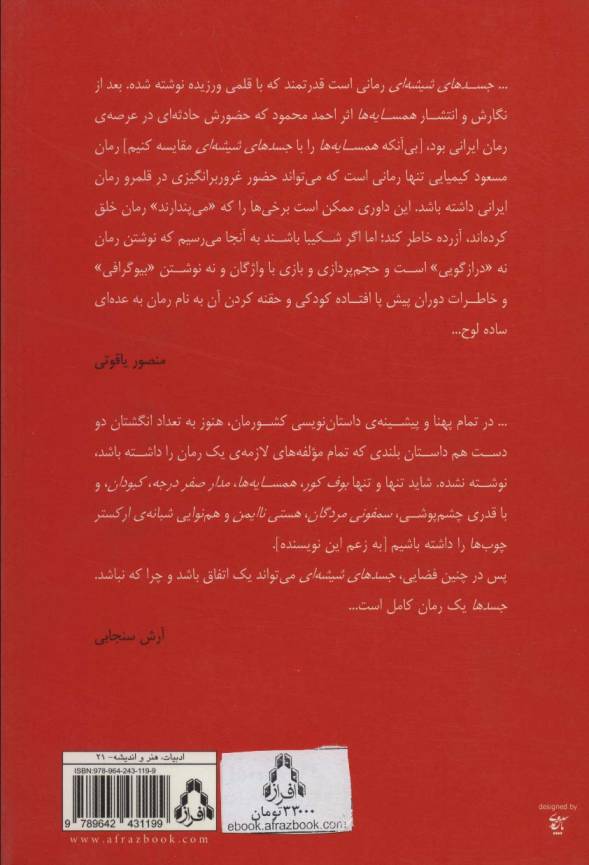 ... جسدهای شیشه‌ای رمانی است قدرتمند که با قلمی ورزیده نوشته شده. بعد از
نگارش و انتشار همسایه‌ها اثر احمد محمود که حضورش حادثه‌ای در عرصه‌ی
رمان ایرانی بود، [بی‌آنکه همسایه‌ها را با جسدهای شیشه‌ای مقایسه کنیم] رمان
مسعود کیمیایی تنها رمانی است که می‌تواند حضور غروربرانگیزی در قلمرو رمان
ایرانی داشته باشد. این داوری ممکن است برخی‌ها را که «می‌پندارند» رمان خلق
کرده‌اند، آزرده خاطر کند؛ اما اگر شکیبا باشند به آنجا می‌رسیم که نوشتن رمان
نه «درازگویی» است و حجم‌پردازی و بازی با واژگان و نه نوشتن «بیوگرافی»
و خاطرات دوران پیش پا افتاده کودکی و حقنه کردن آن به نام رمان به عده‌ای
ساده لوح...
منصور یاقوتی
... در تمام پهنا و پیشینه‌ی داستان‌نویسی کشورمان، هنوز به تعداد انگشتان دو
دست هم داستان بلندی که تمام مؤلفه‌های لازمه‌ی یک رمان را داشته باشد،
نوشته نشده. شاید تنها و تنها بوف کور، همسایه‌ها، مدار صفر درجه، کبودان، و
با قدری چشم‌پوشی، سمفونی مردگان، هستی ناایمن و هم‌نوایی شبانه‌ی ارکستر
چوب‌ها را داشته باشیم [به زعم این نویسنده].
پس در چنین فضایی، جسدهای شیشه‌ای می‌تواند یک اتفاق باشد و چرا که نباشد.
جسدها یک رمان کامل است...
آرش سنجابی
ادبیات، هنر و اندیشه- ۲۱
ISBN:978-964-243-119-9
افراز
9 789642 431199
www.afrazbook.com
افراز
۳۳۰۰۰ تومان
ebook.afrazbook.com
designed by